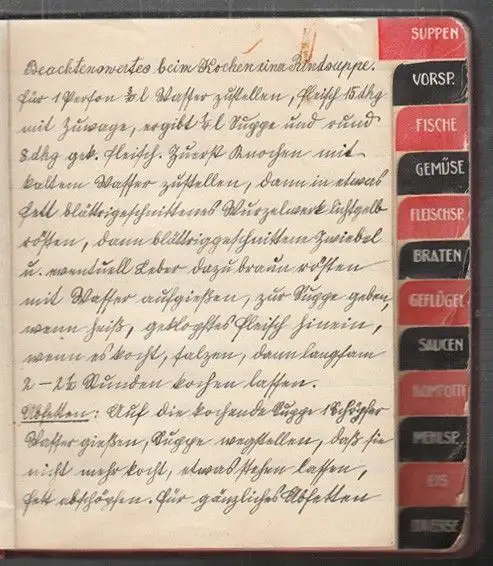 Beachtenswertes beim Kochen einer Rindsuppe.
Für 1 Person l Wasser zustellen, Fleisch 15 dkg
mit Zuwage, ergibt l Suppe und rund
8 dkg gek. Fleisch. Zuerst Knochen mit
kaltem Wasser zustellen, dann in etwas
Fett blättriggeschnittenes Wurzelwerk lichtgelb
rösten, dann blättriggeschnittene Zwiebel
u. eventuell Leber dazu braun rösten
mit Wasser aufgießen, zur Suppe geben,
wenn heiß, geklopftes Fleisch hinein,
wenn es kocht, salzen, dann langsam
2 – 2½ Stunden kochen lassen.
Abfetten: Auf die kochende Suppe 1 Schöpfer
Wasser gießen, Suppe wegstellen, daß sie
nicht mehr kocht, etwas stehen lassen,
Fett abschöpfen. Für gänzliches Abfetten
SUPPEN
VORSP.
FISCHE
GEMÜSE
FLEISCHSP.
BRATEN
GEFLÜGEL
SAUCEN
KOMPOTTE
MEHLSP.
EIS